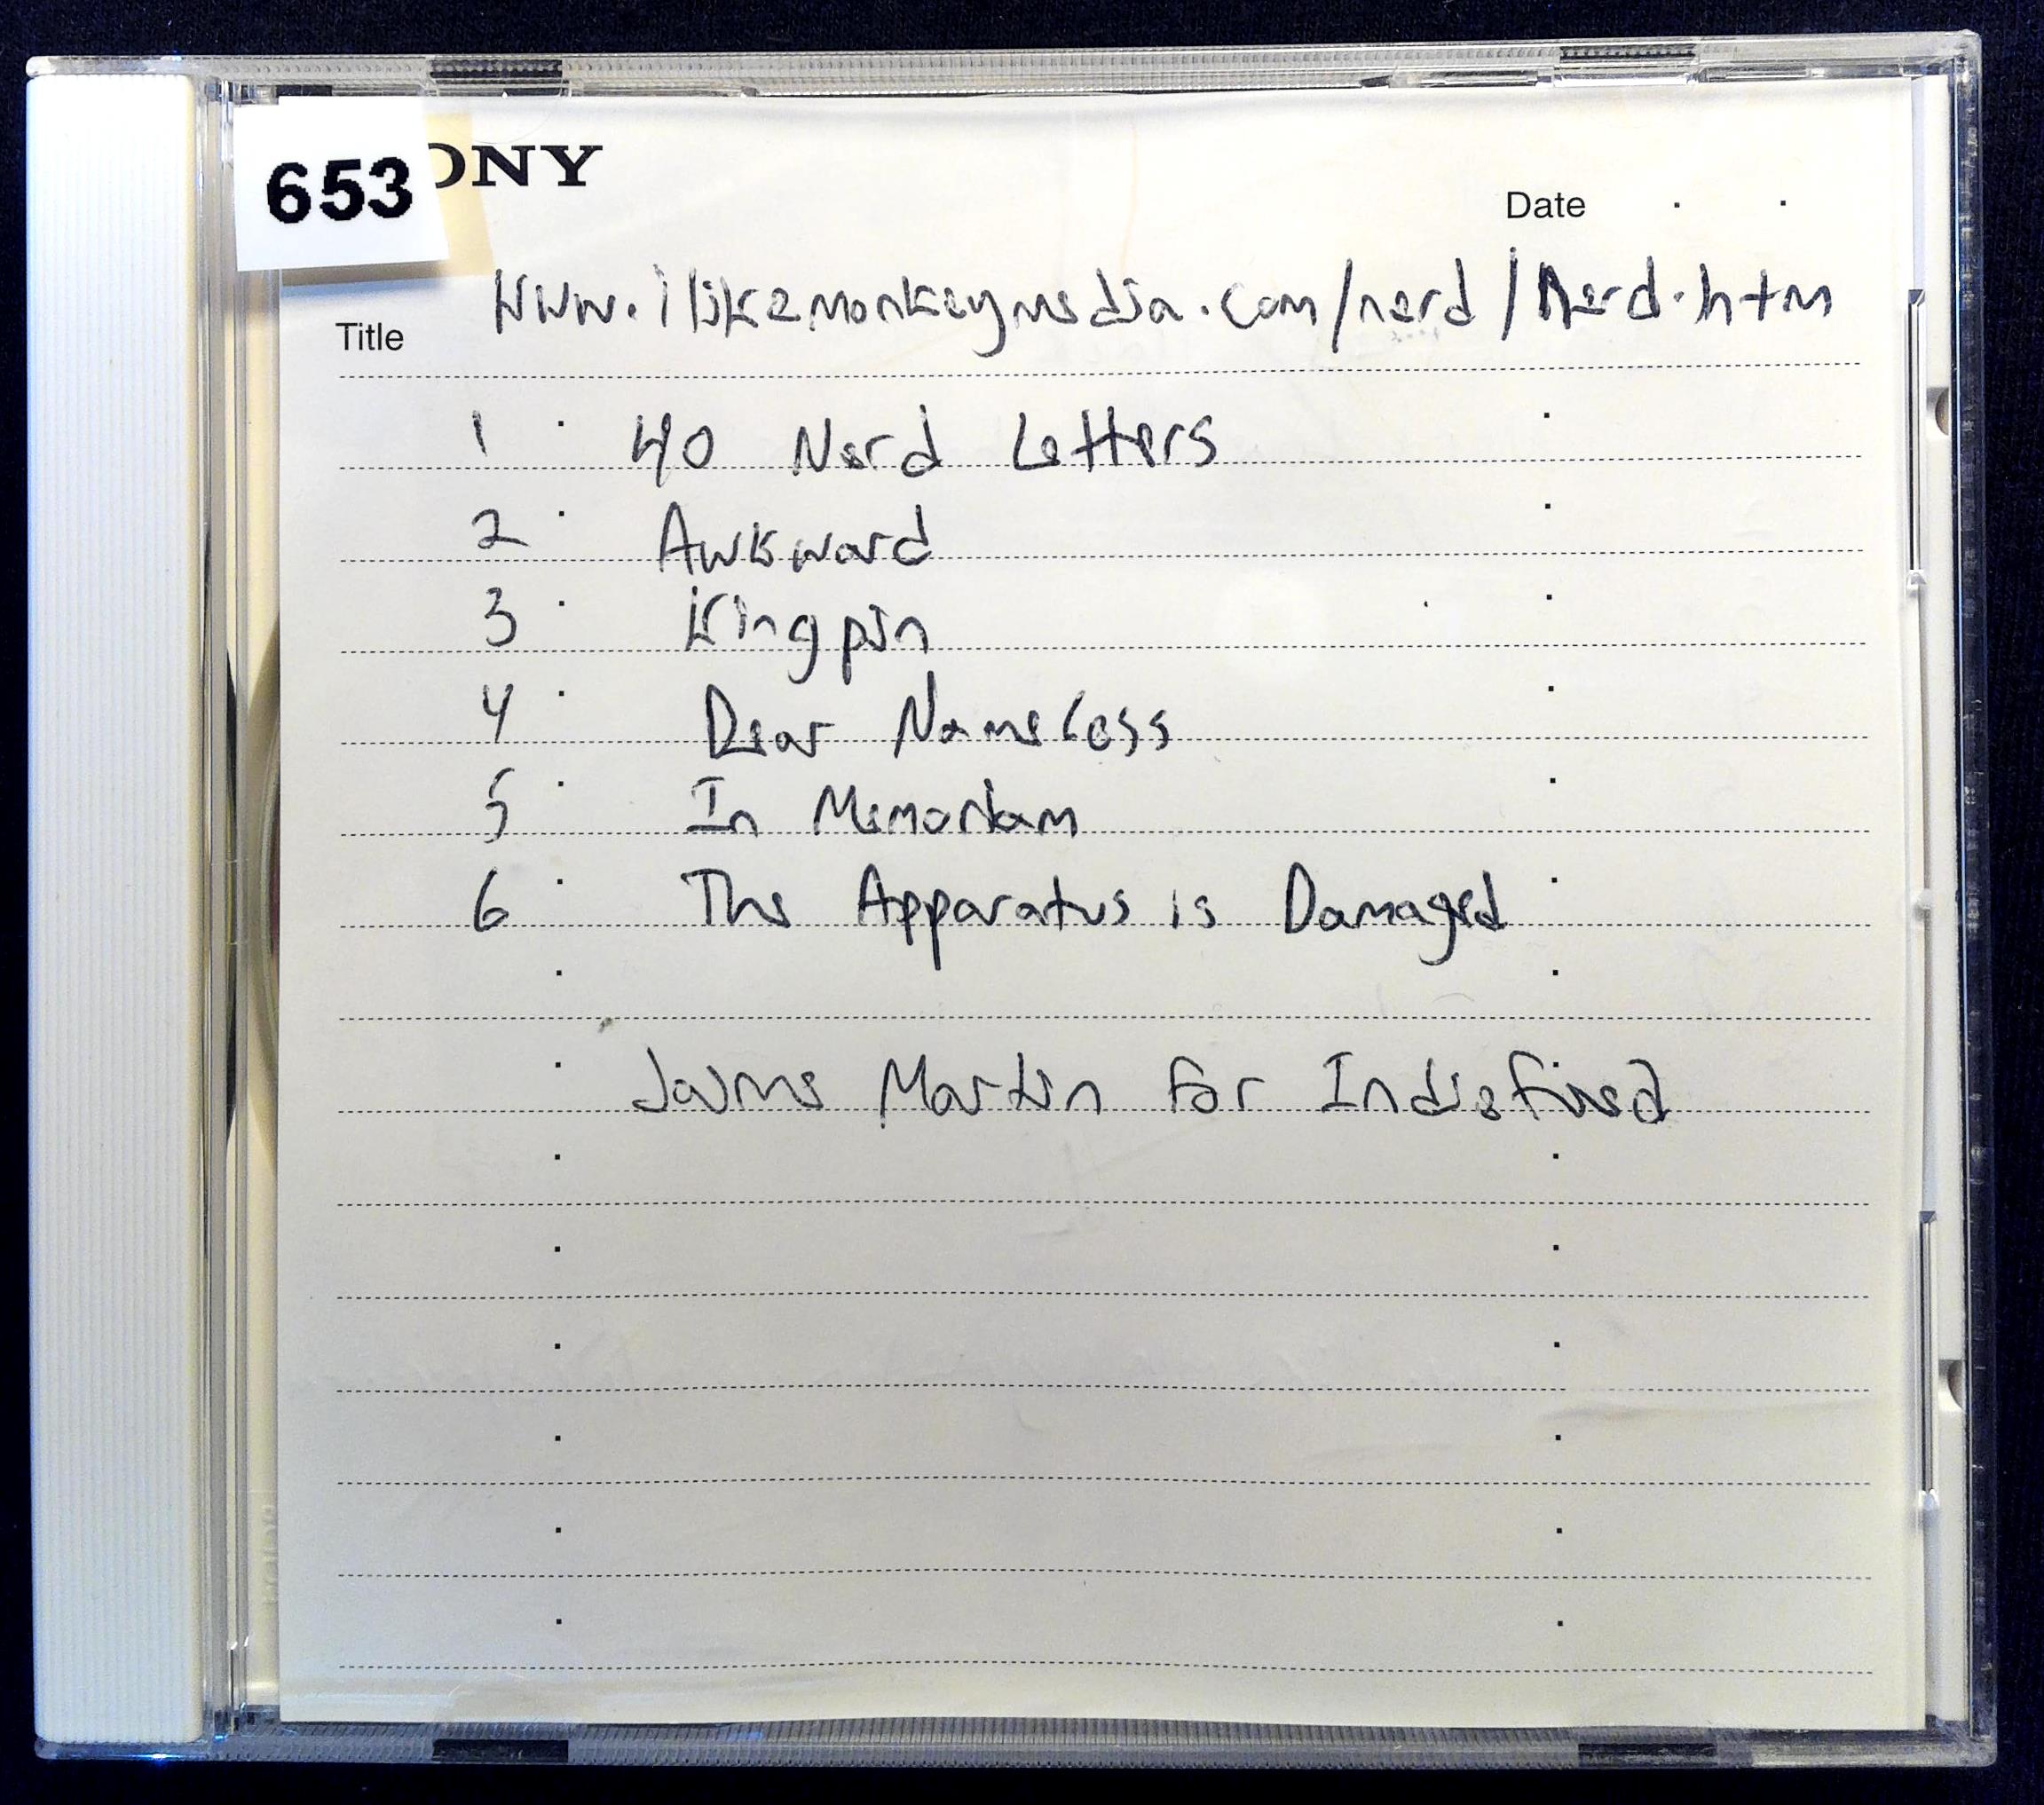 653
ONY
Date . .
www.ilikemonkeymedia.com/nerd/Nerd.htm
Title
1 40 Nerd Letters
2 Awkward
3 Kingpin
4 Dear Nameless
5 In Memoriam
6 The Apparatus is Damaged
Jaime Martin for